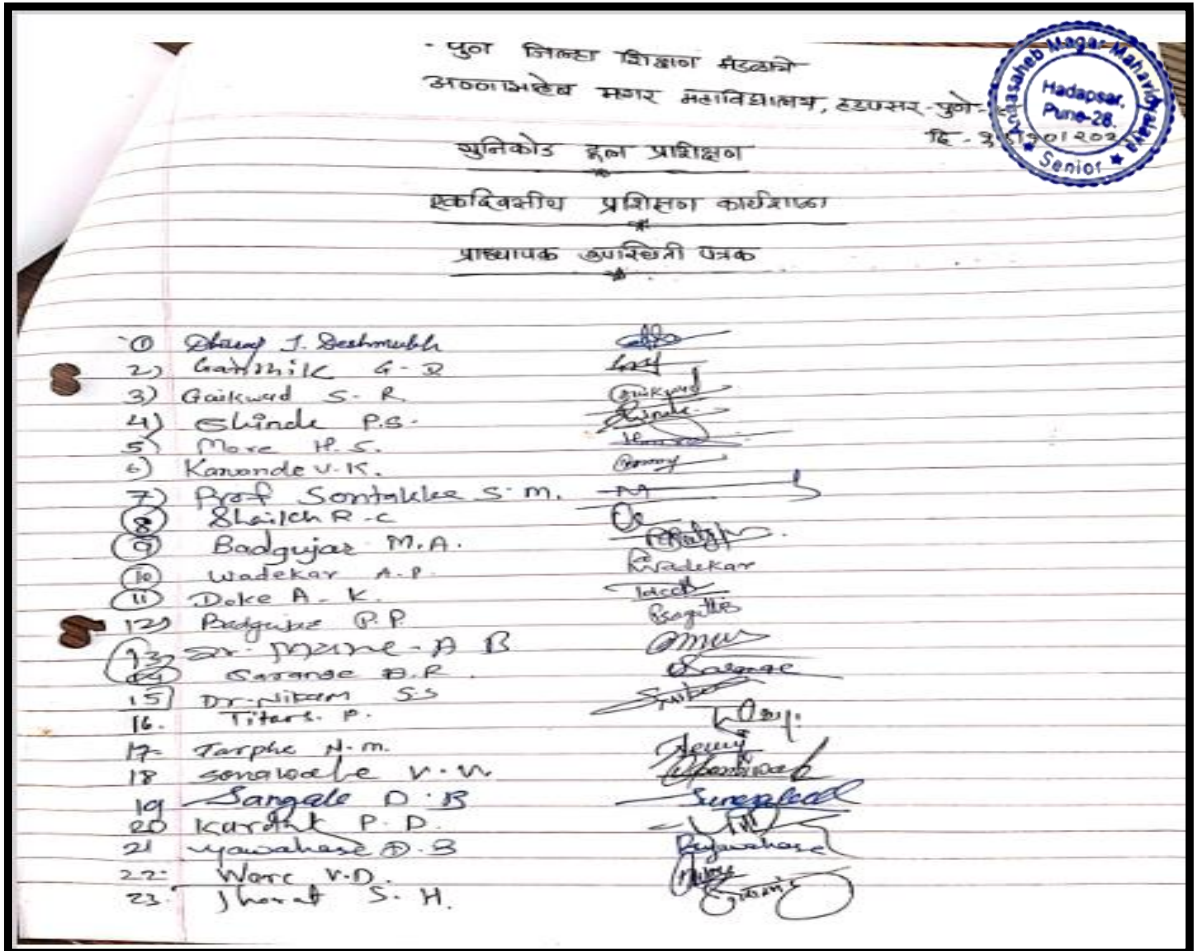 - पुणे जिल्हा शिक्षण मंडळाचे
अण्णासाहेब मगर महाविद्यालय, हडपसर-पुणे-
Annasaheb Magar Mahavidyalaya
Hadapsar,
Pune-28.
Senior
युनिकोड टूल प्रशिक्षण
एकदिवसीय प्रशिक्षण कार्यशाळा
प्राध्यापक उपस्थिती पत्रक
1 J. Deshmukh
2) G-
3) Gaikwad S. R. Gaikwad
4) Shinde P.S. Shinde
5) More H.S.
6) Kanonde V.K.
7) Prof Sontakke S.M.
8 Shaikh R.C
9 Badgujar M.A.
10 Wadekar A.P. Wadekar
11 Doke A. K.
12) Badgujar P.P. Pragati
13) Dr. Mane A B
14 Sarange B.R. Sarange
15) Dr. Nikam S.S
16. Titar S. P.
17- Tarphe N.M.
18 Sonawale V.V.
19 Sangale D.B
20 Kardak P.D.
21 D.B
22- Ware V.D.
23. S.H.